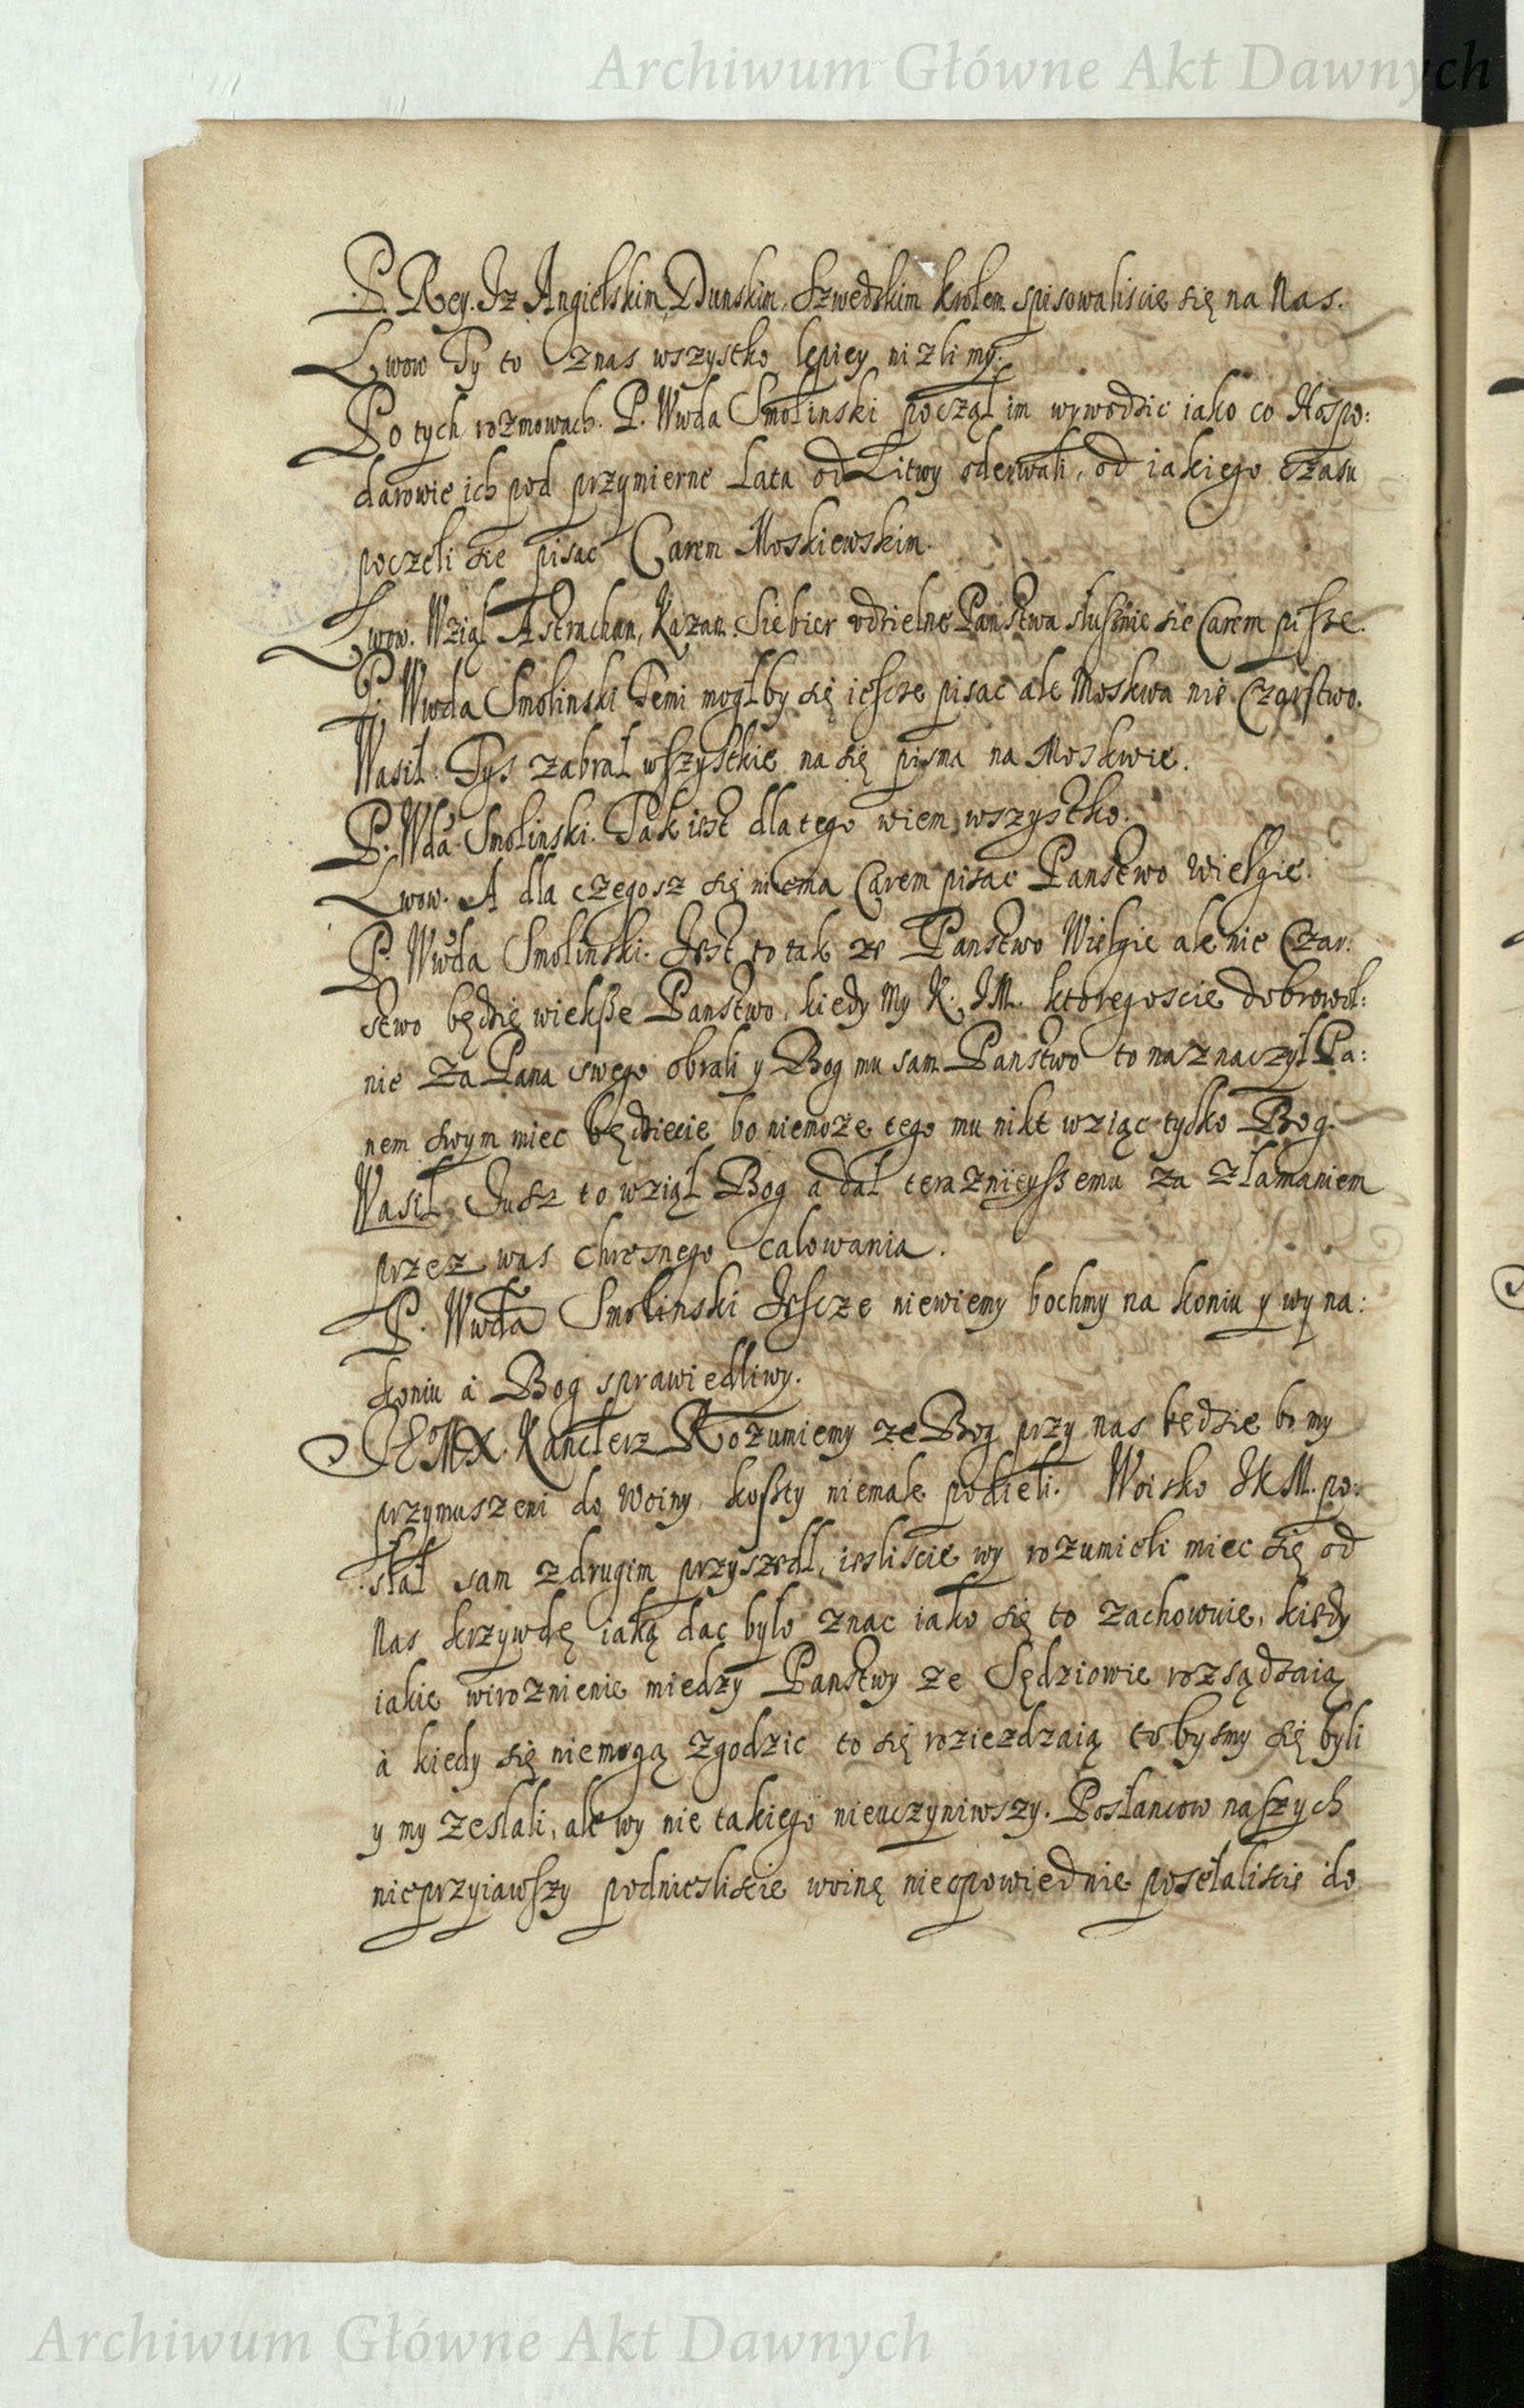 Archiwum Główne Akt Dawnych
P. Rey. Iz Angielskim, Dunskim, Szwedskim krolem spisowaliscie się na Nas.
Lwow Ty to znas wszystko lepiey nizli my.
Po tych rozmowach. P. Wwda Smolinski począł im wywodzic iako co Hospo:
darowie ich pod przymierne Lata od Litwy oderwali, od iakiego czasu
poczeli sie pisac Carem Moskiewskim.
Lwow. Wziął Astrachan, Kazan. Siebier udzielne Panstwa słusznie sie Carem pisze.
P. Wwda Smolinski Temi mogłby się iescze pisac ale Moskwa nie Czarstwo.
Wasil. Tys zabrał wszystkie na się pisma na Moskwie.
P. Wda Smolinski. Tak iest dla tego wiem wszystko.
Lwow. A dla czegosz się niema Carem pisac Panstwo Wielgie.
P. Wwda Smolinski. Iest to tak ze Panstwo Wielgie ale nie Czar:
stwo będzie wieksze Panstwo, kiedy my K. IM. ktoregoscie dobrowol:
nie za Pana swego obrali y Bog mu sam Panstwo to naznaczył Pa:
nem swym miec będziecie bo niemoze tego mu nikt wziąc tylko Bog.
Wasil Iusz to wziął Bog a dał teraznieyszemu za złamaniem
przez was chresnego calowania.
P. Wwda Smolinski Iescze niewiemy bochmy na koniu y wy na:
koniu à Bog sprawiedliwy.
IEMX. Kanclerz Rozumiemy ze Bog przy nas będzie bo my
przymuszeni do Woiny, koszty niemałe podieli. Woisko IKM. po:
słał sam z drugim przyszedł, iesliscie wy rozumieli miec się od
Nas krzywdę iaką dac było znac iako się to zachowuie, kiedy
iakie wiroznienie miedzy Panstwy ze Sędziowie rozsądzaią
à kiedy się niemogą zgodzic to się roziezdzaią to bysmy się byli
y my zeslali, ale wy nic takiego nieuczyniwszy. Posłancow naszych
nieprzyiawszy podniesliscie woinę nieopowiednie posełaliscie do
Archiwum Główne Akt Dawnych